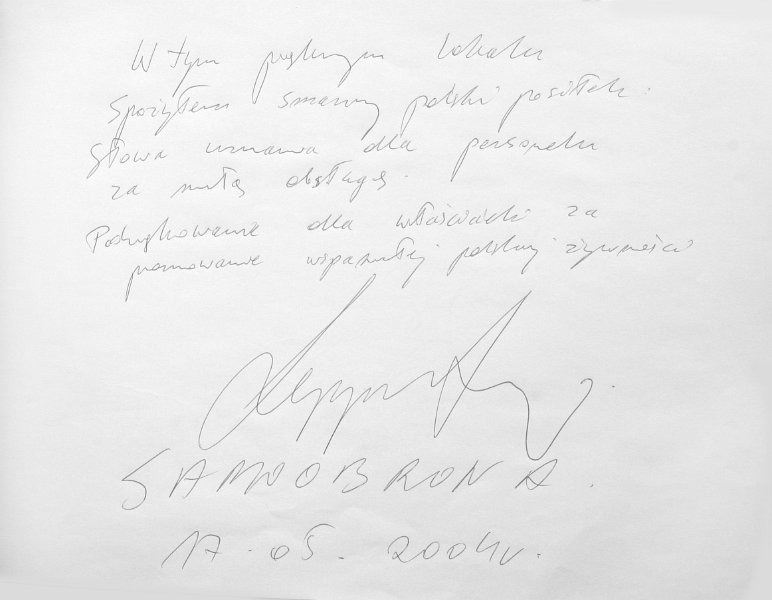 W tym pięknym lokalu
Spożyłem smaczny polski posiłek.
Słowa uznania dla personelu
za miłą obsługę.
Podziękowanie dla właścicieli za
promowanie wspaniałej polskiej żywności
Lepper A
SAMOOBRONA.
17.05.2004r.